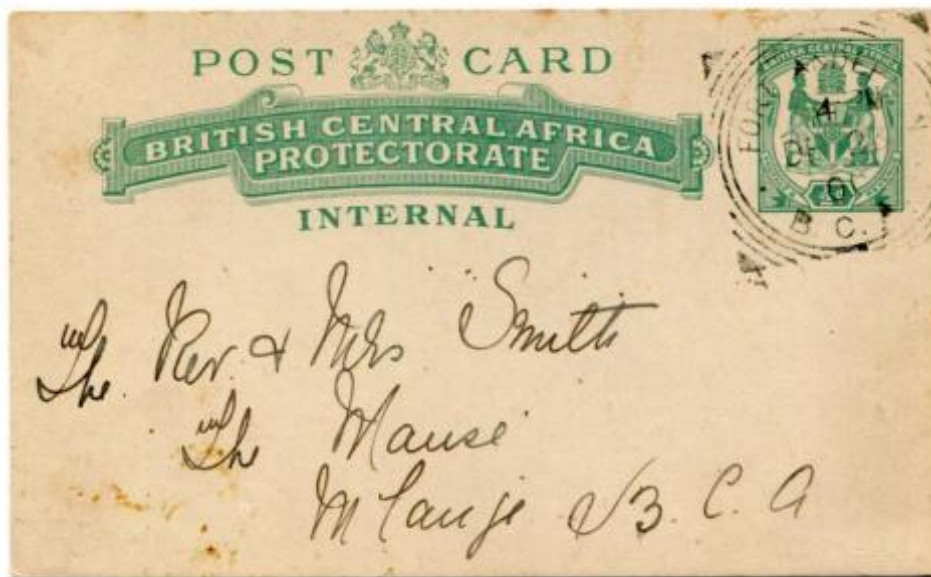 POST CARD
BRITISH CENTRAL AFRICA
PROTECTORATE
INTERNAL
BRITISH CENTRAL AFRICA
FORT
4
DE
01
B. C.
The Rev. & Mrs Smith
The Manse
Mlanje B. C. A